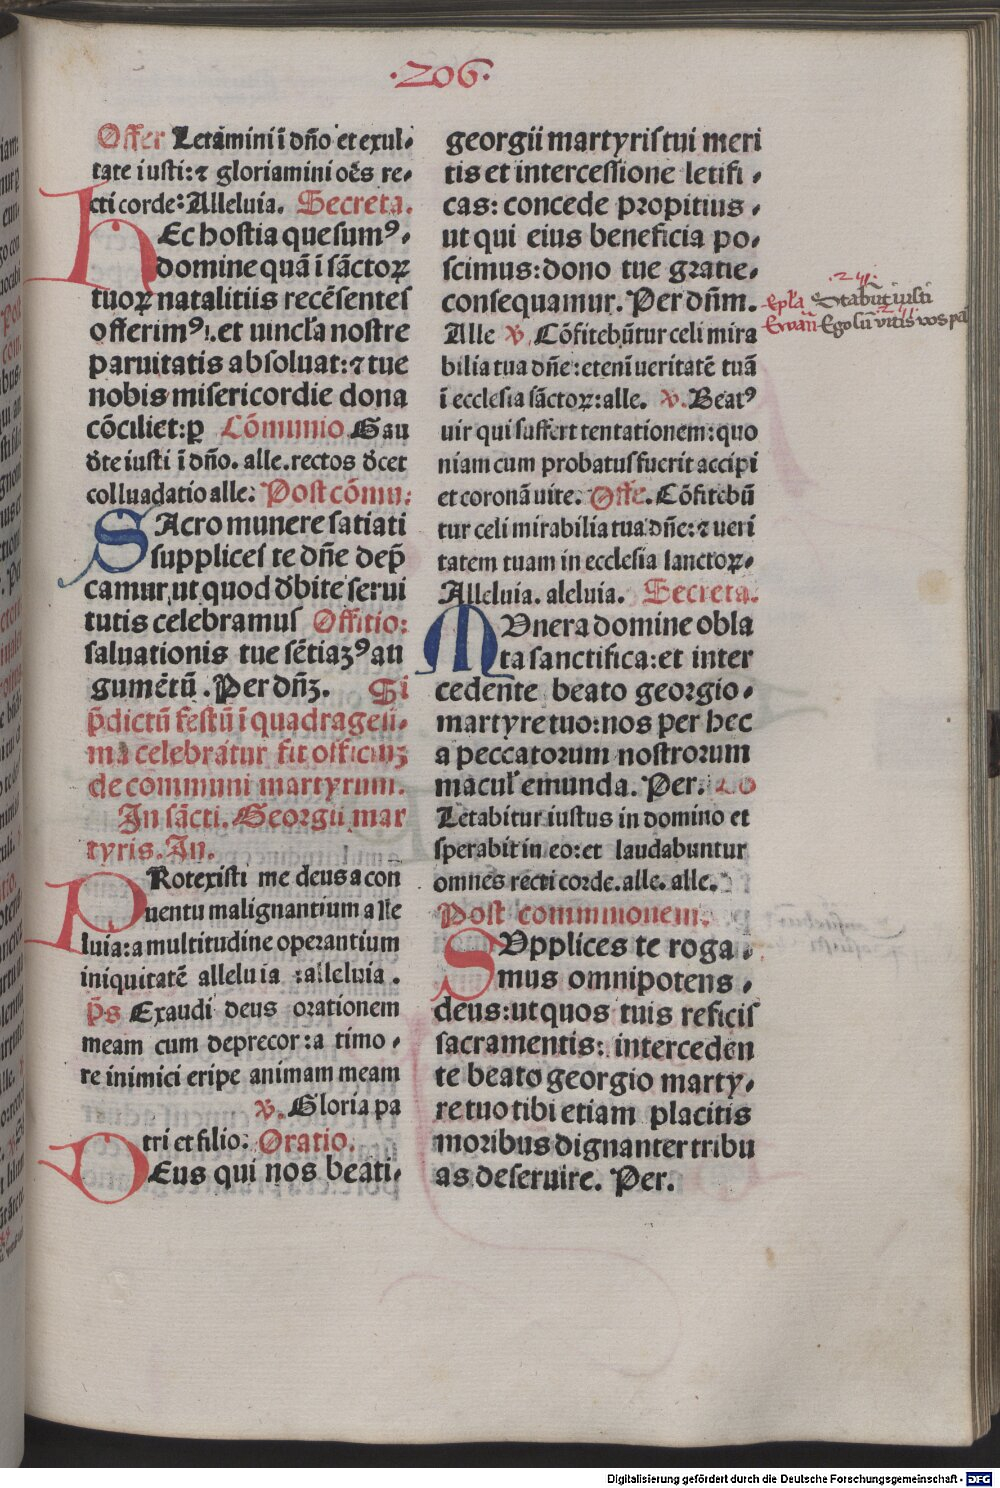 ·206·
Offer Letãmini ĩ dño et exul-
tate iusti:⁊ gloriamini oẽs re-
cti corde: Alleluia. Secreta.
HEc hostia quesumꝰ.
domine quã ĩ sãctoꝝ
tuoꝝ natalitiis recẽsentes
offerimꝰ. et uincl'a nostre
paruitatis absoluat:⁊ tue
nobis misericordie dona
cõciliet:ꝑ Cõmunio Gau
d̃te iusti ĩ dño. alle. rectos d̃cet
colluadatio alle: Post cõmu:
SAcro munere satiati
supplices te dñe dep̃
camur ut quod d̃bite serui
tutis celebramus Offitio:
saluationis tue sẽtiaꝫꝰ au
gumẽtũ. Per dñꝫ. Si
p̃dictũ festũ ĩ quadragesi-
ma celebratur fit officiuꝫ
de cõmmuni martyrum.
In sãcti. Georgii mar
tyris. In.
PRotexisti me deus a con
uentu malignantium alle
luia: a multitudine operantium
iniquitatẽ alleluia :alleluia.
p̃s Exaudi deus orationem
meam cum deprecor: a timo-
re inimici eripe animam meam
℣. Gloria pa
tri et filio: Oratio.
DEus qui nos beati-
georgii martyris tui meri
tis et intercessione letifi-
cas: concede propitius.
ut qui eius beneficia po-
scimus: dono tue gratie-
consequamur. Per dñm.
Alle ℣. Cõfitebũtur celi mira
bilia tua dñe: eteni ueritatẽ tuã
ĩ ecclesia sãctoꝝ: alle. ℣. Beatꝰ
uir qui suffert tentationem: quo
niam cum probatus fuerit accipi
et coronã uite. Offe. Cõfitebũ
tur celi mirabilia tua dñe:⁊ ueri
tatem tuam in ecclesia sanctoꝝ.
Alleluia. aleluia. Secreta.
MVnera domine obla
ta sanctifica: et inter
cedente beato georgio.
martyre tuo: nos per hec
a peccatorum nostrorum
macul' emunda. Per. Co
Letabitur iustus in domino et
sperabit in eo: et laudabuntur
omnes recti corde. alle. alle.
Post commmionem.
SVpplices te roga-
mus omnipotens.
deus: ut quos tuis reficis
sacramentis: interceden
te beato georgio marty-
re tuo tibi etiam placitis
moribus dignanter tribu
as deseruire. Per.
Epl'a Stabũt iusti
Ewañ Ego sũ vitis vos
Digitalisierung gefördert durch die Deutsche Forschungsgemeinschaft - DFG